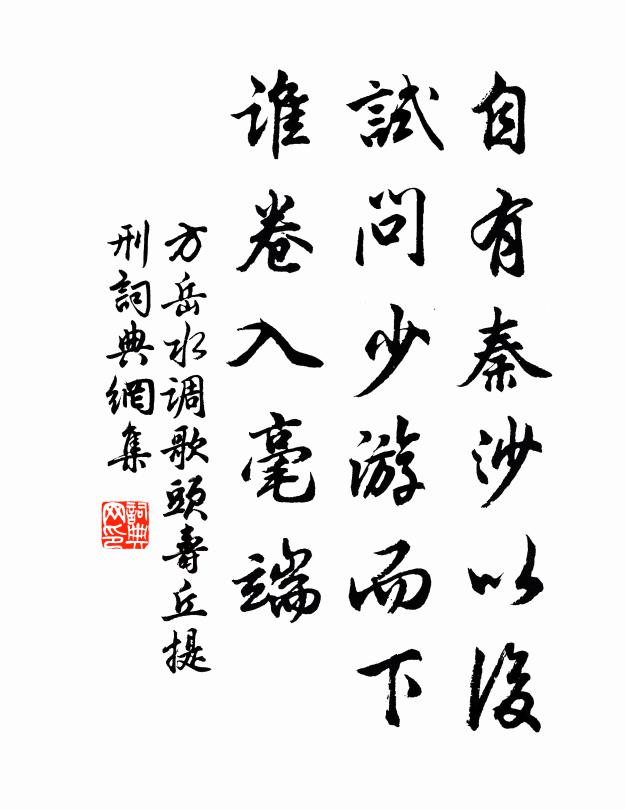 自有秦沙以後
試問少游而下
誰卷入毫端
方岳水调歌頭壽丘提
刑詞典網集
詞典网印